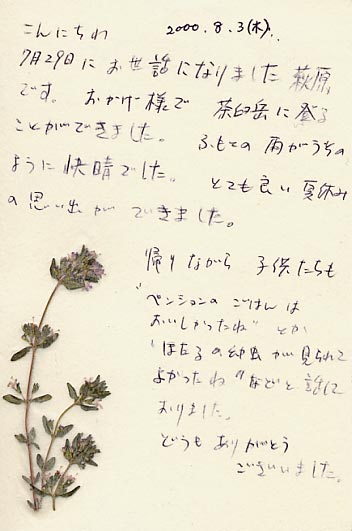 2000.8.3(木)
こんにちわ
7月29日にお世話になりました萩原
です。おかげ様で 茶臼岳に登る
ことができました。ふもとの雨がうその
ように快晴でした。とても良い夏休み
の思い出ができました。
帰りながら 子供たちも
"ペンションのごはんは
おいしかったね" とか
"ほたるの幼虫が見られて
よかったね" などと話して
おりました。
どうもありがとう
ございました。